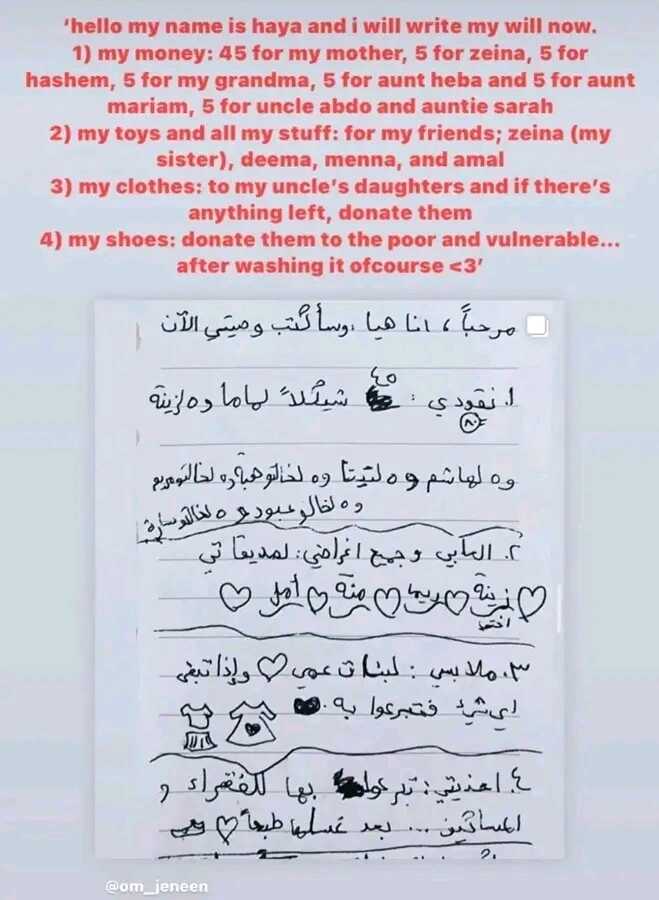 ‘hello my name is haya and i will write my will now.
1) my money: 45 for my mother, 5 for zeina, 5 for
hashem, 5 for my grandma, 5 for aunt heba and 5 for aunt
mariam, 5 for uncle abdo and auntie sarah
2) my toys and all my stuff: for my friends; zeina (my
sister), deema, menna, and amal
3) my clothes: to my uncle’s daughters and if there’s
anything left, donate them
4) my shoes: donate them to the poor and vulnerable...
after washing it ofcourse <3’
مرحباً، انا هيا، وسأكتب وصيتي الآن
٤٥
١. نقودي: شيكلاً لماما و٥ لزينة
٨٠
و٥ لهاشم و٥ لتيتا و٥ لخالتو هبة و٥ لخالتو مريم
و٥ لخالو عبود و٥ لخالتو سارة
٢. العابي وجميع اغراضي: لصديقاتي
زينة ♡ ريما ♡ منة ♡ أمل ♡
اختي
٣. ملابسي: لبنات عمي ♡ وإذا تبقى
اي شيئ فتبرعوا به.
٤. احذيتي: تبرعوا بها للفقراء و
المساكين... بعد غسلها طبعاً ♡
@om_jeneen